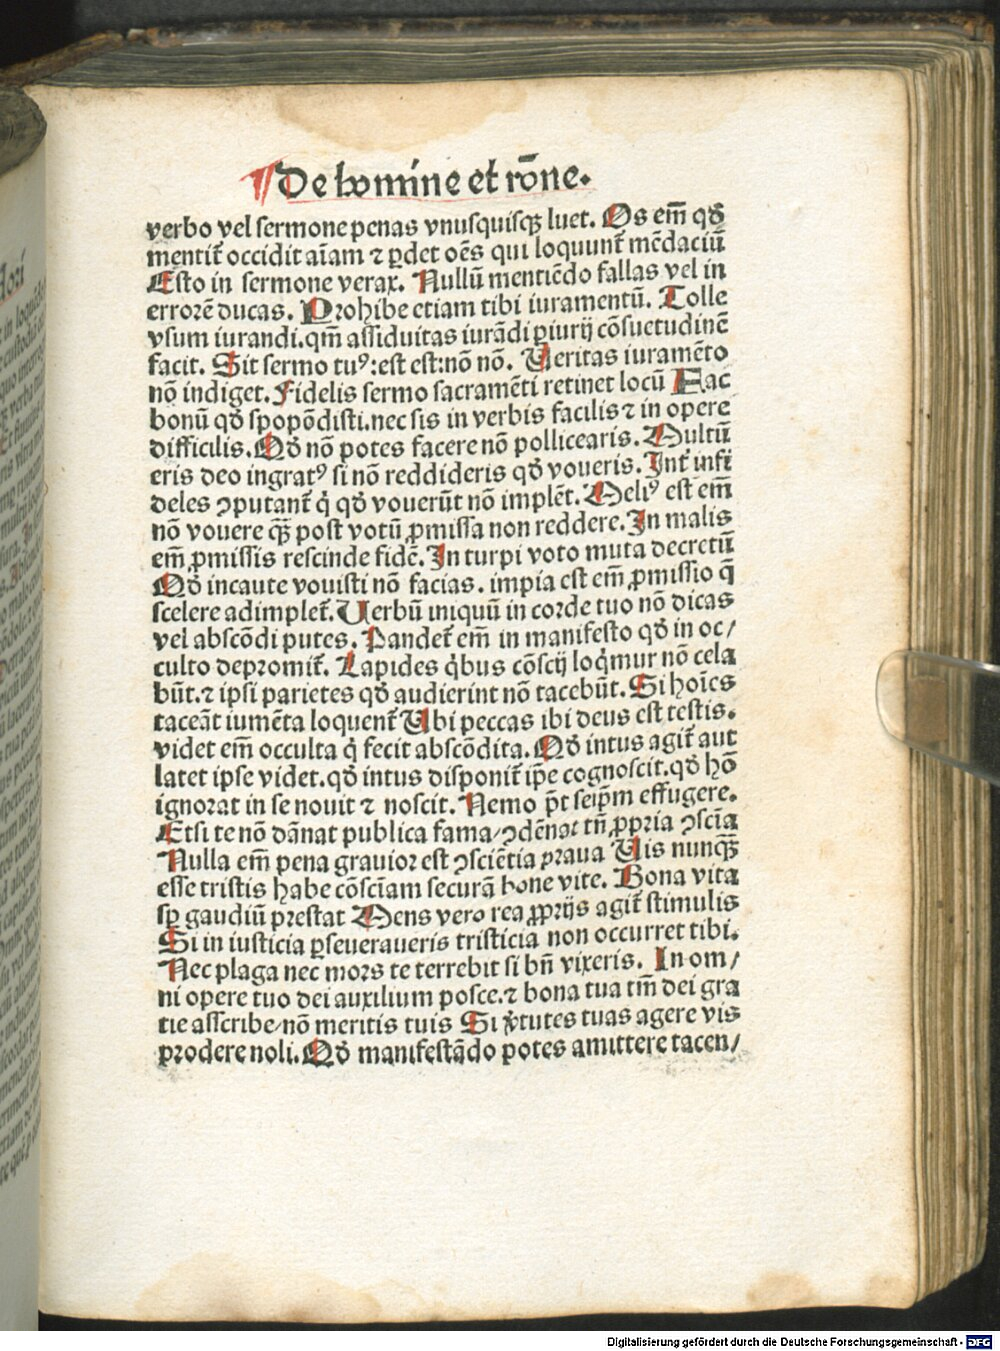 ¶ De homine et rõne.
verbo vel sermone penas vnusquisqꝫ luet. Os em̃ qđ
mentit̃ occidit aĩam ⁊ ꝑdet oẽs qui loquunt̃ mẽdaciũ
Esto in sermone verax. Nullũ mentiẽdo fallas vel in
errorẽ ducas. Prohibe etiam tibi iuramentũ. Tolle
vsum iurandi.qm̃ assiduitas iurãdi ꝑiurij cõsuetudinẽ
facit. Sit sermo tuꝰ:est est:nõ nõ. Veritas iuramẽto
nõ indiget. Fidelis sermo sacramẽti retinet locũ Fac
bonũ qđ spopõdisti.nec sis in verbis facilis ⁊ in opere
difficilis. Qđ nõ potes facere nõ pollicearis. Multũ
eris deo ingratꝰ si nõ reddideris qđ voueris. Int̃ infi
deles ꝯputant̃ q̇ qđ vouerũt nõ implẽt. Meliꝰ est em̃
nõ vouere q̃ꝫ post votũ ꝓmissa non reddere. In malis
em̃ ꝓmissis rescinde fidẽ. In turpi voto muta decretũ
Qđ incaute vouisti nõ facias. impia est em̃ ꝓmissio q̃
scelere adimplet̃. Verbũ iniquũ in corde tuo nõ dicas
vel abscõdi putes. Pandet̃ em̃ in manifesto qđ in oc/
culto depromit̃. Lapides q̇bus cõscij loq̇mur nõ cela
bũt.⁊ ipsi parietes qđ audierint nõ tacebũt. Si hoĩes
taceãt iumẽta loquent̃ Vbi peccas ibi deus est testis.
videt em̃ occulta q̇ fecit abscõdita. Qđ intus agit̃ aut
latet ipse videt.qđ intus disponit̃ ip̃e cognoscit.qđ hõ
ignorat in se nouit ⁊ noscit. Nemo p̃t seip̃m effugere.
Etsi te nõ dãnat publica fama/ꝯdẽnat tñ ꝓpria ꝯscĩa
Nulla em̃ pena grauior est ꝯsciẽtia praua Vis nunq̃ꝫ
esse tristis habe cõscĩam securã bone vite. Bona vita
sꝑ gaudiũ prestat Mens vero rea ꝓprijs agit̃ stimulis
Si in iusticia ꝑseueraueris tristicia non occurret tibi.
Nec plaga nec mors te terrebit si bñ vixeris. In om/
ni opere tuo dei auxilium posce.⁊ bona tua tm̃ dei gra
tie asscribe/nõ meritis tuis Si v̓tutes tuas agere vis
prodere noli. Qđ manifestãdo potes amittere tacen/
Digitalisierung gefördert durch die Deutsche Forschungsgemeinschaft - DFG